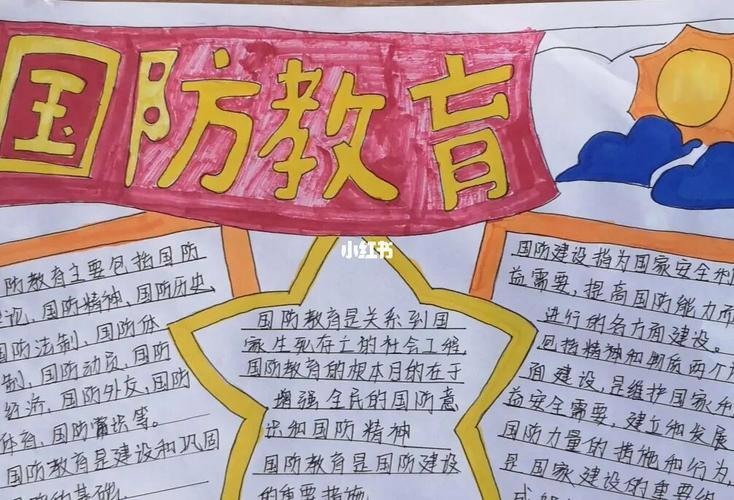 国防教育
小红书
防教育主要包括国防
国防精神、国防历史、
国防法制、国防体
制、国防动员、国防
经济、国防外交、国防
体育、国防常识等。
国防教育是建设和巩固
国防的基础.
国防教育是关系到国
家生死存亡的社会工程.
国防教育的根本目的在于
增强全民的国防意
识和国防精神
国防教育是国防建设
的重要措施
国防建设指为国家安全利
益需要,提高国防能力而
进行的各方面建设。
包括精神和物质两个方
面建设,是维护国家利
益安全需要,建立和发展
国防力量的措施和行为
是国家建设的重要组